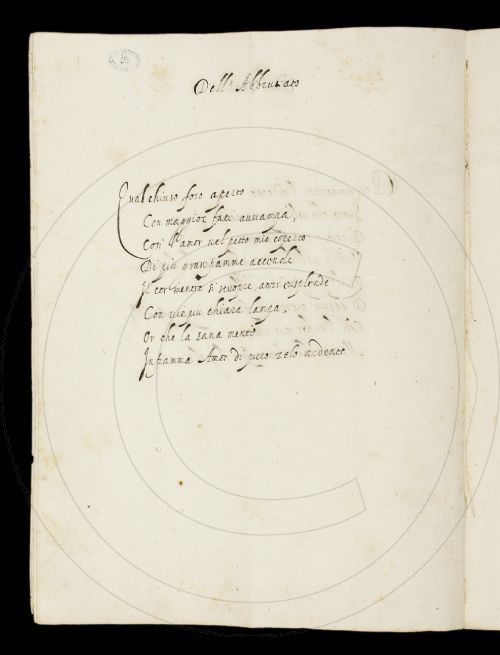 Dell' Abbrucato
Qual chiuso foco aperto
Con maggior faci avvampa,
Così l'amor nel petto mio coperto
Di più gran fiamme accende
Il cor mentre si scuopre, anzi risplende
Con più chiara lampa,
Or che la sana mente
Infiamma Amor di puro zelo ardente